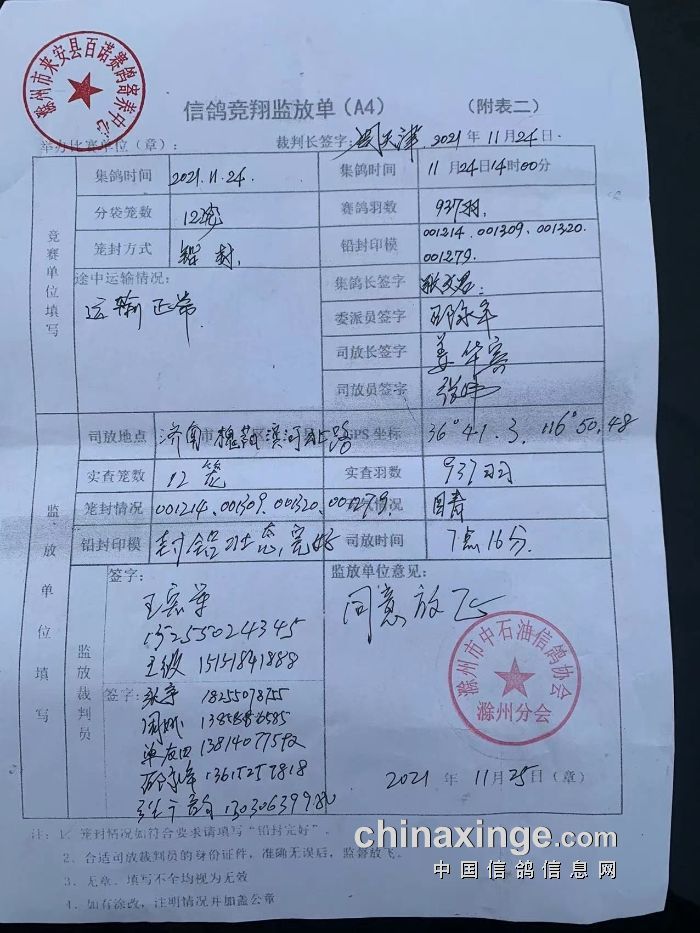 滁州市来安县百诺赛鸽寄养中心
信鸽竞翔监放单（A4） （附表二）
举办比赛单位（章）： 裁判长签字： 周天津 2021年11月24日
竞赛单位填写
集鸽时间 2021.11.24 集鸽时间 11月24日14时00分
分袋笼数 12笼 赛鸽羽数 937羽.
笼封方式 铅封. 铅封印模 001214.001309.001320.001279.
途中运输情况： 运输正常.
集鸽长签字
委派员签字 邵永平
司放长签字
司放员签字 张
监放单位填写
司放地点 济南市槐荫区滨河北路 GPS坐标 36°41.3, 116°50.48
实查笼数 12笼 实查羽数 937羽
笼封情况 001214.001309.001320.001279. 天气情况 日青
铅封印模 封铅状态,完好 司放时间 7点16分.
监放裁判员
签字： 监放单位意见：
王宗军 同意放飞
13255024345
王级 15151841888
签字： 18255078755
周 
单友田
邵永峰 13615257818
滁州市中石油信鸽协会
滁州分会
2021年11月25日（章）
注：1、笼封情况如符合要求请填写“铅封完好”。
2、合适司放裁判员的身份证件，准确无误后，监督放飞。
3、无章、填写不全均视为无效
4、如有涂改，注明情况并加盖公章
chinaxinge.com
中国信鸽信息网